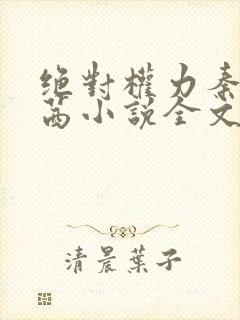 絕對權力秦
茜小說全文
清晨葉子